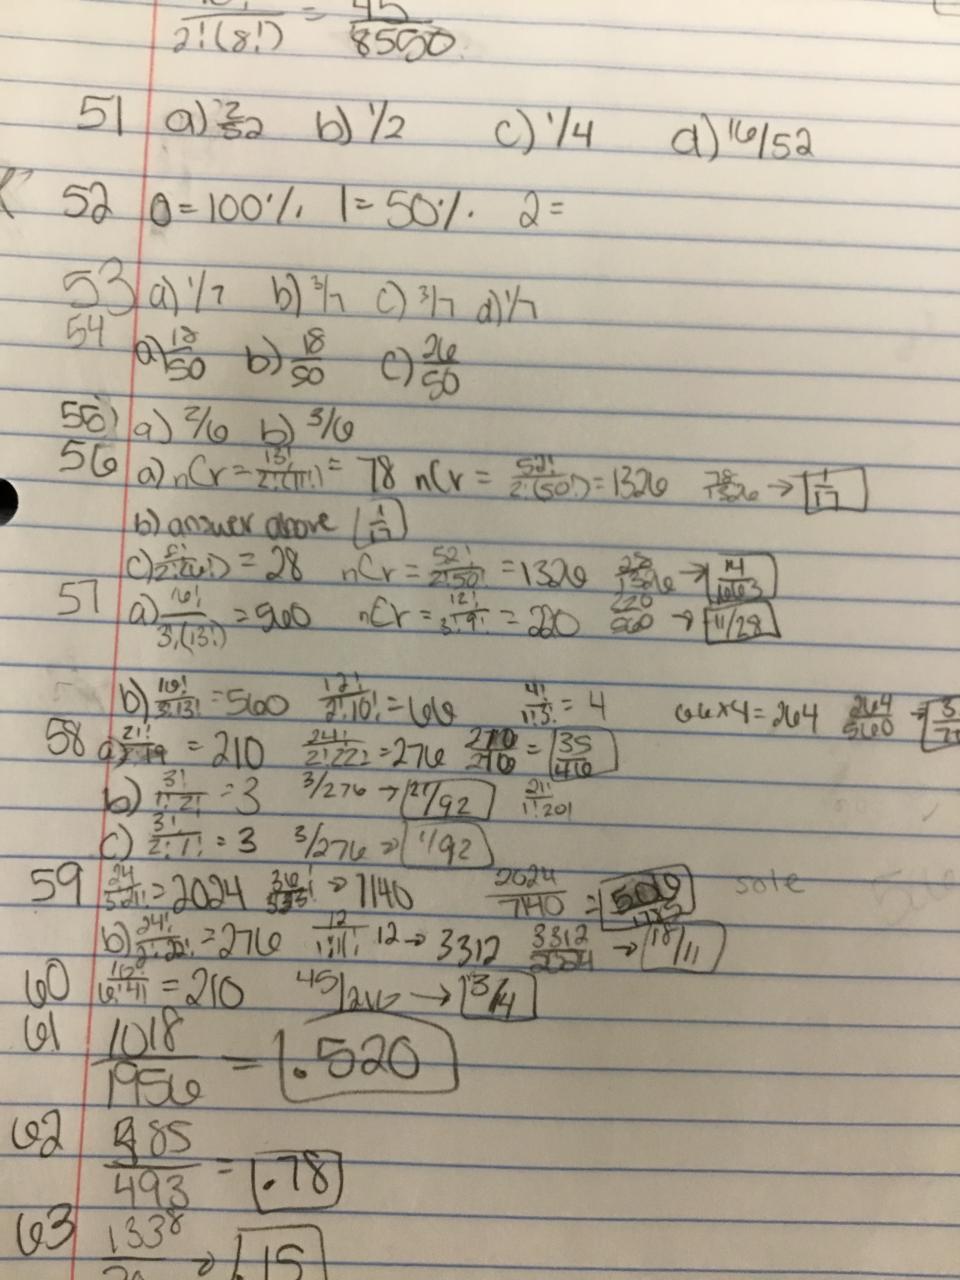 2!(8!) = 45/8550
51 a) 2/52 b) 1/2 c) 1/4 d) 16/52
52 0=100% 1=50% 2=
53 a) 1/7 b) 3/7 c) 3/7 d) 1/7
54 a) 18/50 b) 18/50 c) 26/50
55) a) 2/6 b) 3/6
56 a) nCr = 13!/2!(11!) = 78 nCr = 52!/2!(50!) = 1326 78/1326 → 1/17
b) answer above 1/17
c) 8!/2!(6!) = 28 nCr = 52!/2!50! = 1326 28/1326 → 14/663
57 a) 16!/3!(13!) = 560 nCr = 12!/3!9! = 220 220/560 → 11/28
b) 16!/3!13! = 560 12!/2!10! = 66 4!/1!3! = 4 66×4=264 264/560 →
58 a) 21!/2!19 = 210 24!/2!22! = 276 210/276 = 35/46
b) 3!/1!2! = 3 3/276 → 21/92 21!/1!20!
c) 3!/2!1! = 3 3/276 → 1/92
59 24/3!21! = 2024 → 7140 2024/7140 = sole
b) 24!/2!22! = 276 12/1!11! 12 → 3312 3312/2024 → 18/11
60 10!/6!4! = 210 45/210 → 3/4
61 1018/1956 = .520
62 385/493 = .78
63 1338 → .15